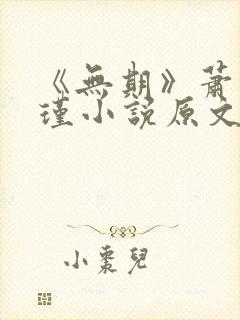 《無期》蕭
瑾小說原文
小棗兒